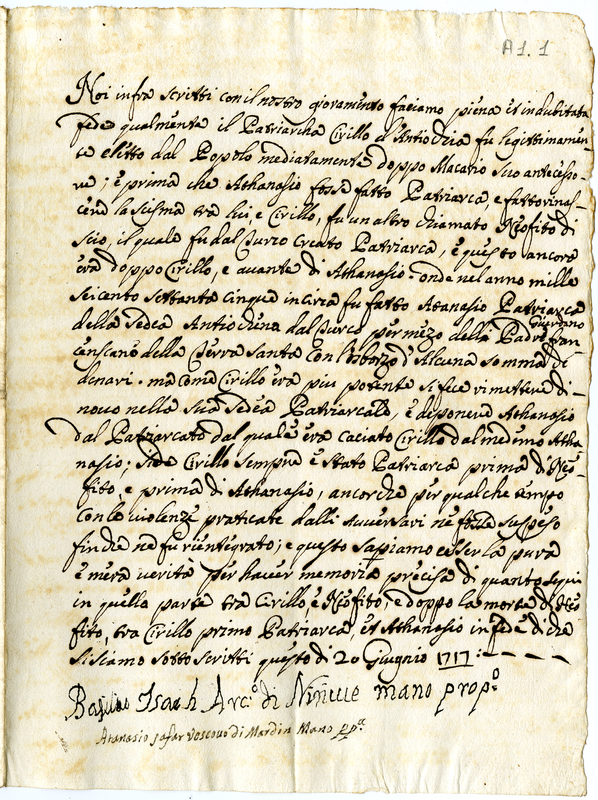 A1.1
Noi infra scritti con il nostro giuramento faciamo piena et indubitata
fede qualmente il Patriarcha Cirillo d'Antiochia fu legittimamen-
te eletto dal Popolo mediatamente doppo Macario suo antecesso-
re; e prima che Athanasio fosse fatto Patriarca, e fattovi nas-
cere la scisma tra lui, e Cirillo, fu un altro chiamato Neofito di
Scio, il quale fu dal Turco creato Patriarca, e questo ancora
era doppo Cirillo, e avante di Athanasio. onde nel anno mille
seicento settanta cinque in ciria fu fatto Atanasio Patriarca
della Sedea Antiochena dal Turco per mezo della Padre Guardiano fran
censcano della Terra Santa con l'esborzo d'Alcuna somma di
denari. ma come Cirillo era piu potente si fece rimettere di-
nouo nella sua Sedea Patriarcale, e deponere Athanasio
dal Patriarcato dal quale era caciato Cirillo dal medemo Atha-
nasio; Cirillo sempre è stato Patriarca prima di Neo-
fito, e prima di Athanasio, ancorche per qualche tempo
con le violenze praticate dalli Auversari ne fosse suspeso
finche ne fu rientegrato; e questo sapiamo esser la pura
e mera verità per hauer memoria precisa di quanto segui
in quella parte tra Cirillo, e Neofito, e doppo la morte di Neo
fito, tra Cirillo primo Patriarca, et Athanasio in fede di che
si siamo sotto scritti questo di 20 Giugnio 1717:
Basilio Isaah Arc.o di Niniue mano prop.o
Atanasio safar Vescovo di Mardin Mano pp.a